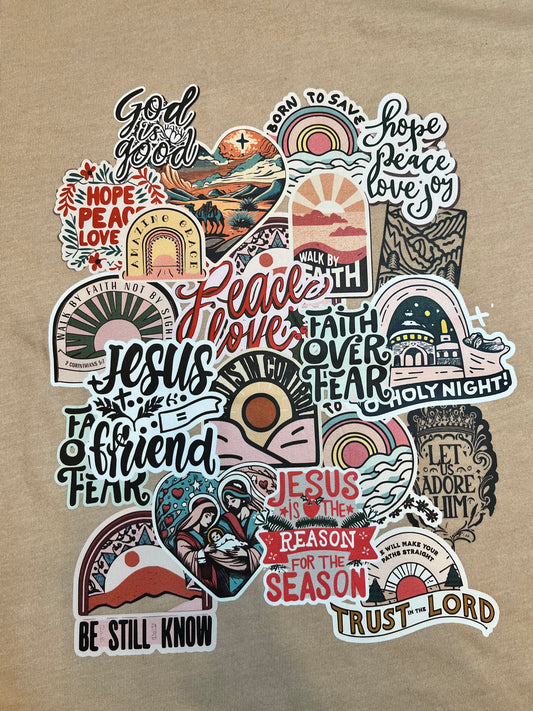 God
is
good
BORN TO SAVE
hope
peace
love joy
HOPE
PEACE
LOVE
AMAZING GRACE
WALK BY
FAITH
WALK BY FAITH NOT BY SIGHT
2 CORINTHIANS 5:7
Peace
love
FAITH
OVER
FEAR
O HOLY NIGHT!
JESUS
friend
IS IN CONTROL
TO
FA
O
FEAR
LET
US
ADORE
HIM
JESUS
IS THE
REASON
FOR THE
SEASON
WILL MAKE YOUR
PATHS STRAIGHT
TRUST IN THE LORD
BE STILL KNOW